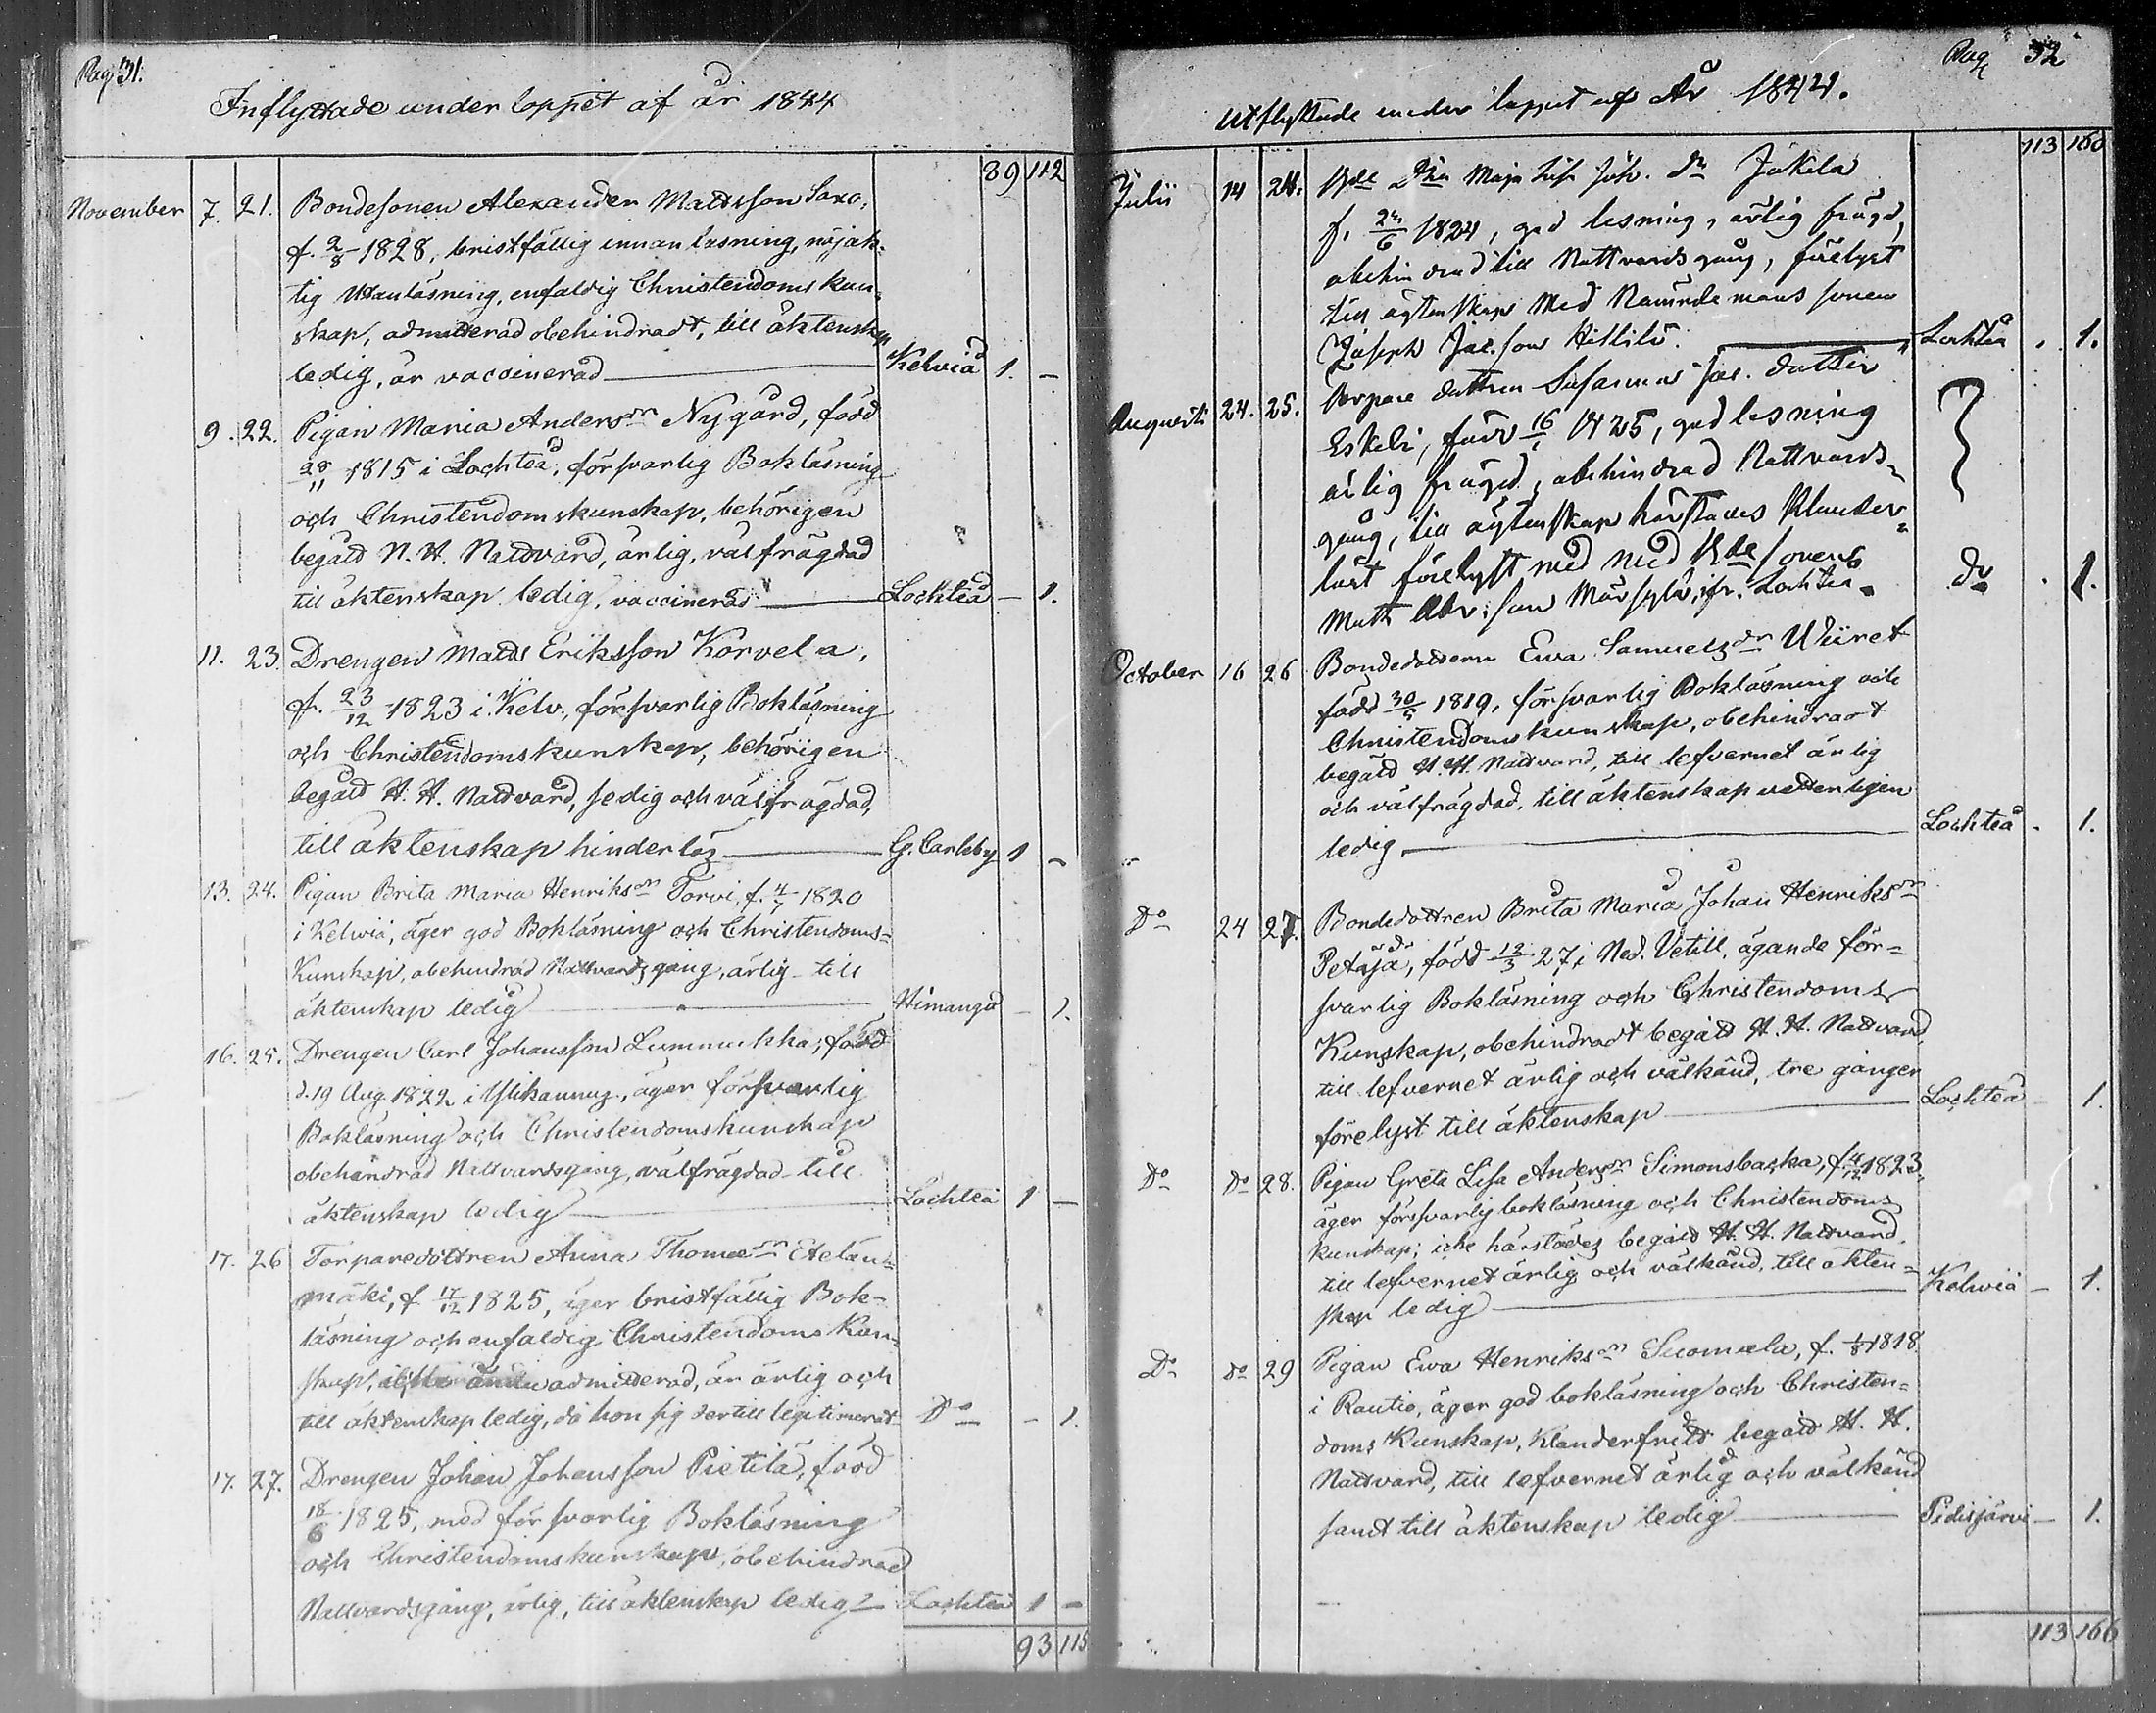 Pag 31.
Inflyttade under loppet af år 1844
89 112
November 7. 21. Bondesonen Alexander Mattsson Saxo,
f. 2/8 1828, bristfällig innanläsning, nöjak-
tig Utanläsning, enfaldig Christendomskun-
skap, admitterad obehindradt, till äktenskap
ledig, är vaccinerad Kelviå 1. -
9. 22. Pigan Maria Anders dr Nygård, född
28/11 1815 i Lochteå, försvarlig Bokläsning
och Christendomskunskap, behörigen
begått N. H. Nattvard, ärlig, välfrägdad
till äktenskap ledig, vaccinerad Lochteå - 1.
11. 23. Drengen Matts Eriksson Korvela,
f. 23/12 1823 i Kelv., försvarlig Bokläsning
och Christendomskunskap, behörigen
begått H. H. Nattvard, sedig och välfrägdad,
till äktenskap hinderlös G. Carleby 1 -
13. 24. Pigan Brita Maria Henriks dr Torvi, f. 4/7 1820
i Kelwiå, äger god Bokläsning och Christendoms-
Kunskap, obehindrad Nattvardsgång, ärlig till
äktenskap ledig Himango - 1.
16. 25. Drengen Carl Johansson Lummukka, född
d. 19 Aug. 1822 i Ylikannus, äger försvarlig
Bokläsning och Christendomskunskap
obehindrad Nattvardsgång, välfrägdad till
äktenskap ledig Lochteå 1 -
17. 26 Torparedottren Anna Thomæ dr Etelän-
mäki, f 17/12 1825, äger bristfällig Bok-
läsning och enfaldig Christendoms Kun-
skap, admitterad, är ärlig och
till äktenskap ledig, då hon sig dertill legitimerat Do - 1.
17. 27. Drengen Johan Johansson Pietilä, född
18/6 1825, med försvarlig Bokläsning
och Christendomskunskap, obehindrad
Nattvardsgång, ärlig, till äktenskap ledig Lochteå 1 -
93 115
Pag 32
Utflyttade under loppet af År 1844.
113 160
Julii 14 24. Bde Maja Lisa Joh. dr Jokela
f. 24/6 1824, god lesning, ärlig frägd,
obehindrad till Nattvardsgång, förelyst
till ägtenskap Med Nämndemans sonen
Joseph Jac. son Hillilä. Lochteå . 1.
Augusti 24. 25. Torpare dottren Susanna Jac. dotter
Eskeli, född 16/1 1825, god lesning
ärlig frägd, obehindrad Nattvards-
gång, till ägtenskap härstädes Klander-
löst förelyst med med Bde sonen
Matts Abr. son Märsylä, ifr. Lochteå. Do . 1.
October 16 26 Bondedottern Ewa Samuels dr Wiiret
född 30/5 1819, försvarlig Bokläsning och
Christendomskunskap, obehindradt
begått H. H. Nattvard, till lefvernet ärlig
och välfrägdad, till äktenskap vetterligen
ledig Lochteå . 1.
Do 24 27. Bondedottren Brita Maria Johan Henriks dr
Petäjä, född 12/3 27, i Ned. Vetill, ägande för-
svarlig Bokläsning och Christendoms
Kunskap, obehindradt begått H. H. Nattvard,
till lefvernet ärlig och välkänd, tre gånger
förelyst till äktenskap Lochteå 1.
Do do 28. Pigan Greta Lisa Anders dr Simonsbacka, f. 4/12 1823,
äger försvarlig bokläsning och Christendoms
kunskap; icke härstädes begått H. H. Nattvard,
till lefvernet ärlig och välkänd, till äkten-
skap ledig Kelwiå - 1.
Do do 29 Pigan Ewa Henriks dr Suomala, f. 1/8 1818.
i Rautio, äger god bokläsning och Christen-
doms Kunskap, Klanderfritt begått H. H.
Nattvard, till lefvernet ärlig och välkänd
samt till äktenskap ledig Pidisjärvi - 1.
113 166